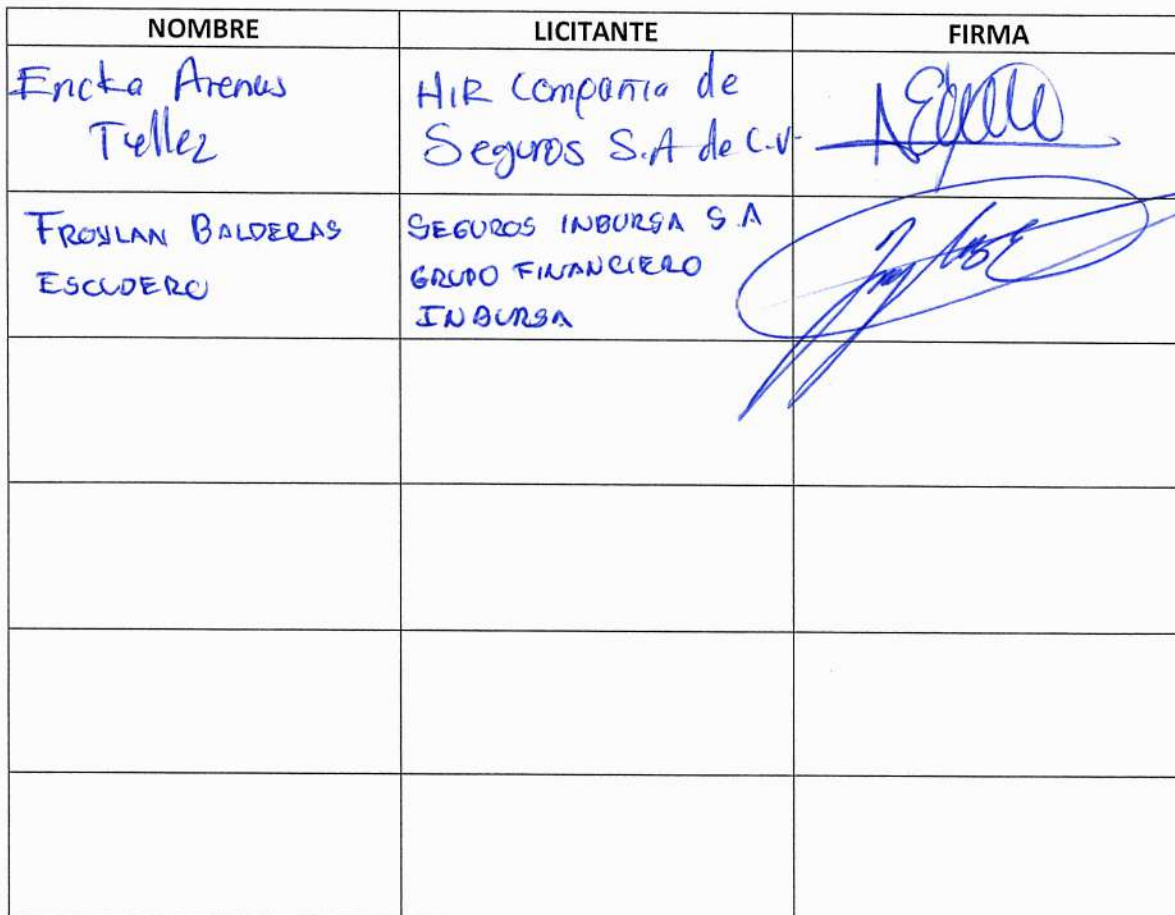 NOMBRE LICITANTE FIRMA
Ericka Arenas
Tellez
HIR Compañia de
Seguros S.A de C.V.
FROYLAN BALDERAS
ESCUDERO
SEGUROS INBURSA S.A
GRUPO FINANCIERO
INBURSA